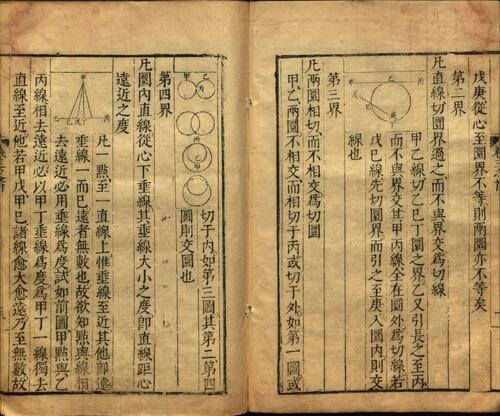 戊庚從心至圜界不等則兩圜亦不等矣
第二界
凡直線切圜界過之而不與界交爲切線
甲乙線切乙己丁圜之界乙又引長之至丙
而不與界交其甲丙線全在圜外爲切線若
戊己線先切圜界而引之至庚入圜內則交
線也
第三界
凡兩圜相切而不相交爲切圜
甲乙兩圜不相交而相切于丙或切于外如第一圖或
切于內如第三圖其第二第四
圖則交圜也
第四界
凡圜內直線從心下垂線其垂線大小之度卽直線距心
遠近之度
凡一點至一直線上惟垂線至近其他卽遠
垂線一而已遠者無數也故欲知點與線相
去遠近必用垂線爲度試如前圖甲點與乙
丙線相去遠近必以甲丁垂線爲度爲甲丁一線獨去
直線至近他若甲戊甲己諸線愈大愈遠乃至無數故